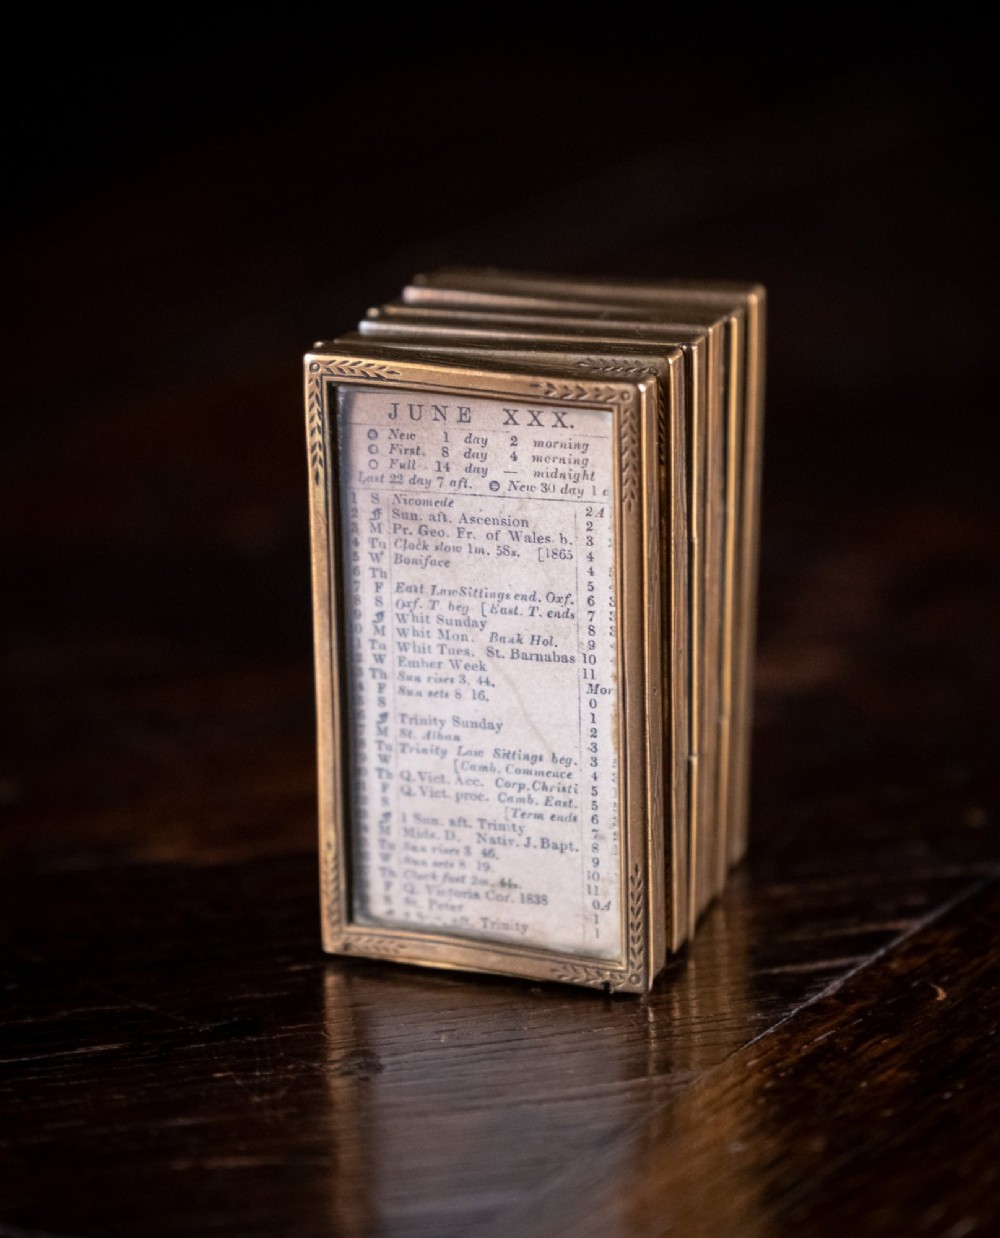 JUNE XXX.
New 1 day 2 morning
First. 8 day 4 morning
Full 14 day — midnight
Last 22 day 7 aft. New 30 day 1
1 S Nicomede 2A
2 Sun. aft. Ascension 2
3 M Pr. Geo. Fr. of Wales b. 3
4 Tu Clock slow 1m. 58s. [1865 4
5 W Boniface 4
6 Th 5
7 F East Law Sittings end. Oxf. 6
8 S Oxf. T beg [East. T. ends 7
9 Whit Sunday 8
0 M Whit Mon. Bank Hol. 9
1 Tu Whit Tues. St. Barnabas 10
2 W Ember Week 11
3 Th Sun rises 3. 44. Mor
4 F Sun sets 8 16. 0
5 S 1
Trinity Sunday 2
7 M St. Alban 3
8 Tu Trinity Law Sittings beg. 3
W [Camb. Commence 4
Th Q. Vict. Acc. Corp. Christi 5
F Q. Vict. proc. Camb. East. 5
S [Term ends 6
1 Sun. aft. Trinity 7
M Mids. D. Nativ. J. Bapt. 8
Tu Sun rises 3 46. 9
W Sun sets 8 19. 10
Th Clock fast 2m. 44s. 11
F Q. Victoria Cor. 1838 0A
S St. Peter 1
aft. Trinity 1